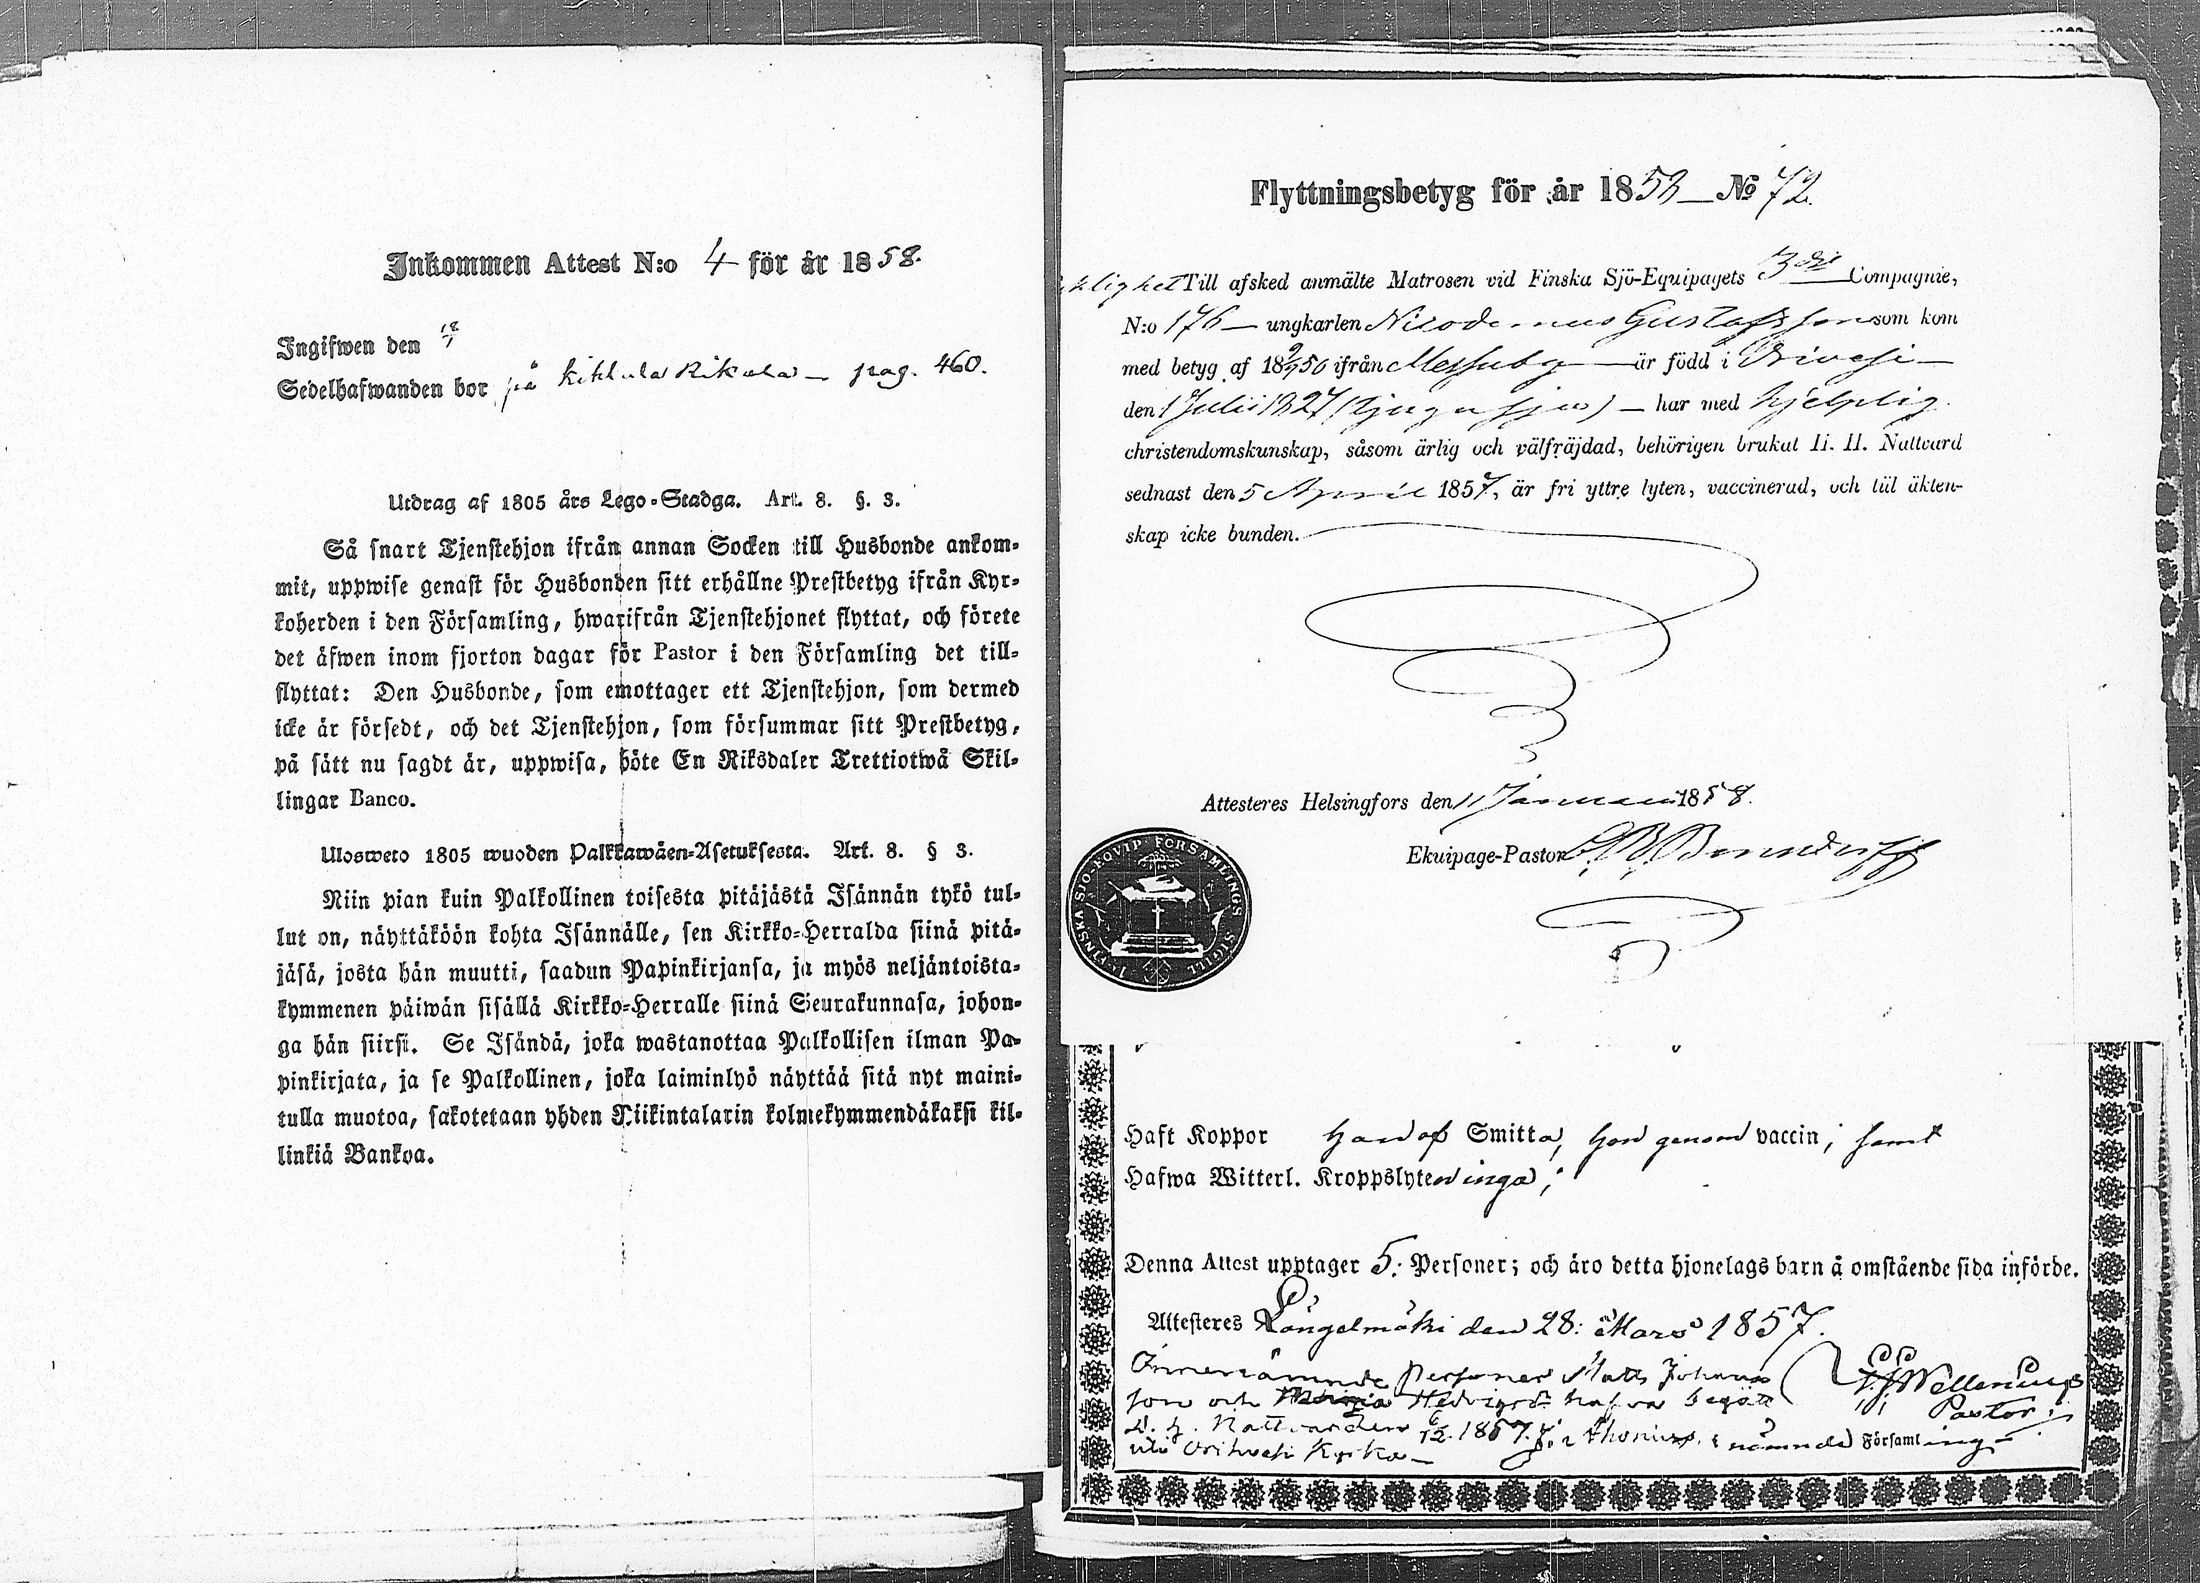 Inkommen Attest N:o 4 för år 1858.
Ingifwen den 18/1
Sedelhafwanden bor på Kikkula Rikala — pag. 460.
Utdrag af 1805 års Lego-Stadga. Art. 8. §. 3.
Så snart Tjenstehjon ifrån annan Socken till Husbonde ankom-
mit, uppwise genast för Husbonden sitt erhållne Prestbetyg ifrån Kyr-
koherden i den Församling, hwarifrån Tjenstehjonet flyttat, och förete
det äfwen inom fjorton dagar för Pastor i den Församling det till-
flyttat: Den Husbonde, som emottager ett Tjenstehjon, som dermed
icke är försedt, och det Tjenstehjon, som försummar sitt Prestbetyg,
på sätt nu sagdt är, uppwisa, böte En Riksdaler Trettiotwå Skil-
lingar Banco.
Ulosweto 1805 wuoden Palkkawäen-Asetuksesta. Art. 8. § 3.
Niin pian kuin Palkollinen toisesta pitäjästä Isännän tykö tul-
lut on, näyttäköön kohta Isännälle, sen Kirkko-Herralda siinä pitä-
jäsä, josta hän muutti, saadun Papinkirjansa, ja myös neljäntoista-
kymmenen päiwän sisällä Kirkko-Herralle siinä Seurakunnasa, johon-
ga hän siirsi. Se Isändä, joka wastanottaa Palkollisen ilman Pa-
pinkirjata, ja se Palkollinen, joka laiminlyö näyttää sitä nyt maini-
tulla muotoa, sakotetaan yhden Riikintalarin kolmekymmendäkaksi kil-
linkiä Bankoa.
Flyttningsbetyg för år 1858 — No 72.
Till afsked anmälte Matrosen vid Finska Sjö-Equipagets 3die Compagnie,
N:o 176 — ungkarlen Nicodemus Gustafsson som kom
med betyg af 18 50 ifrån Messuby — är född i Orivesi —
den 1 Julii 1827 (tjugusju) — har med hjelplig
christendomskunskap, såsom ärlig och välfräjdad, behörigen brukat H. H. Nattvard
sednast den 5 April 1857, är fri yttre lyten, vaccinerad, och till äkten-
skap icke bunden.
Attesteres Helsingfors den 11 Januari 1858.
Ekuipage-Pastor
FINSKA SJÖ-EQVIP FÖRSAMLINGS SIGILL
Haft Koppor han af Smitta, hon genom vaccin; samt
Hafwa Witterl. Kroppslyten inga;
Denna Attest upptager 5: Personer; och äro detta hjonelags barn å omstående sida införde.
Attesteres Längelmäki den 28: Mars 1857.
Pastor
personer Matts Johans
son och Hedvig hafva begått
H. H. Nattvarden 6/12 1857 nämnde Församling
uti Orihvesi Kyrka —